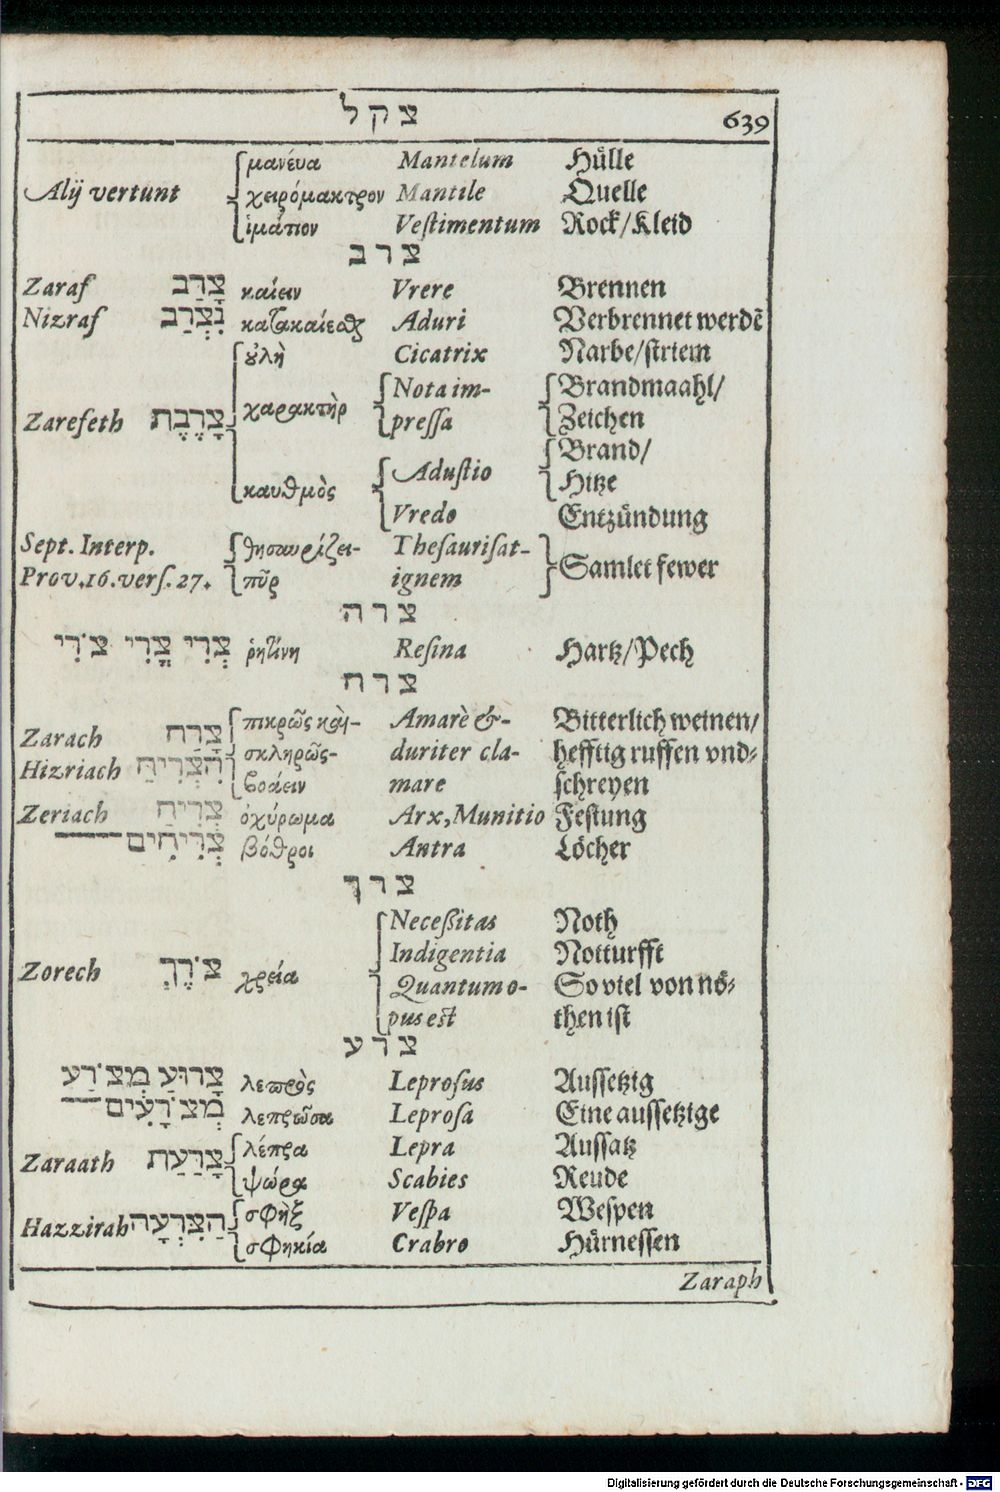 צ ק ל 639
μανένα Mantelum Hülle
Alij vertunt χειρόμακτρον Mantile Quelle
ἱμάτιον Vestimentum Rock/Kleid
צ ר ב
Zaraf צָרַב καίειν Vrere Brennen
Nizraf נִצְרַב κατακαίεσθζ Aduri Verbrennet werdē
οὐλὴ Cicatrix Narbe/striem
χαρακτὴρ Nota im- Brandmaahl/
Zarefeth צָרֶבֶת pressa Zeichen
Brand/
Adustio Hitze
καυθμὸς
Vredo Entzündung
Sept. Interp. θησαυρίζει- Thesaurisat- Samlet fewer
Prov.16.vers.27. πῦρ ignem
צ ר ה
צְרִי צֳרִי צֹרִי ῥητίνη Resina Hartz/Pech
צ ר ח
Zarach צָרַח πικρῶς καὶ- Amarè &- Bitterlich weinen/
Hizriach הִצְרִיחַ σκληρῶς- duriter cla- hefftig ruffen vnd-
βοάειν mare schreyen
Zeriach צְרִיחַ ὀχύρωμα Arx, Munitio Festung
צְרִיחִים βόθροι Antra Löcher
צ ר ך
Necessitas Noth
Indigentia Notturfft
Zorech צֹרֶךְ χρεία Quantum o- So viel von nö-
pus est then ist
צ ר ע
צָרוּעַ מְצֹרַע λεπρὸς Leprosus Aussetzig
מְצֹרָעִים λεπρῶσα Leprosa Eine aussetzige
Zaraath צָרַעַת λέπρα Lepra Aussatz
ψώρα Scabies Reude
Hazzirah הַצִּרְעָה σφὴξ Vespa Wespen
σφηκία Crabro Hürnessen
Zaraph
Digitalisierung gefördert durch die Deutsche Forschungsgemeinschaft - DFG